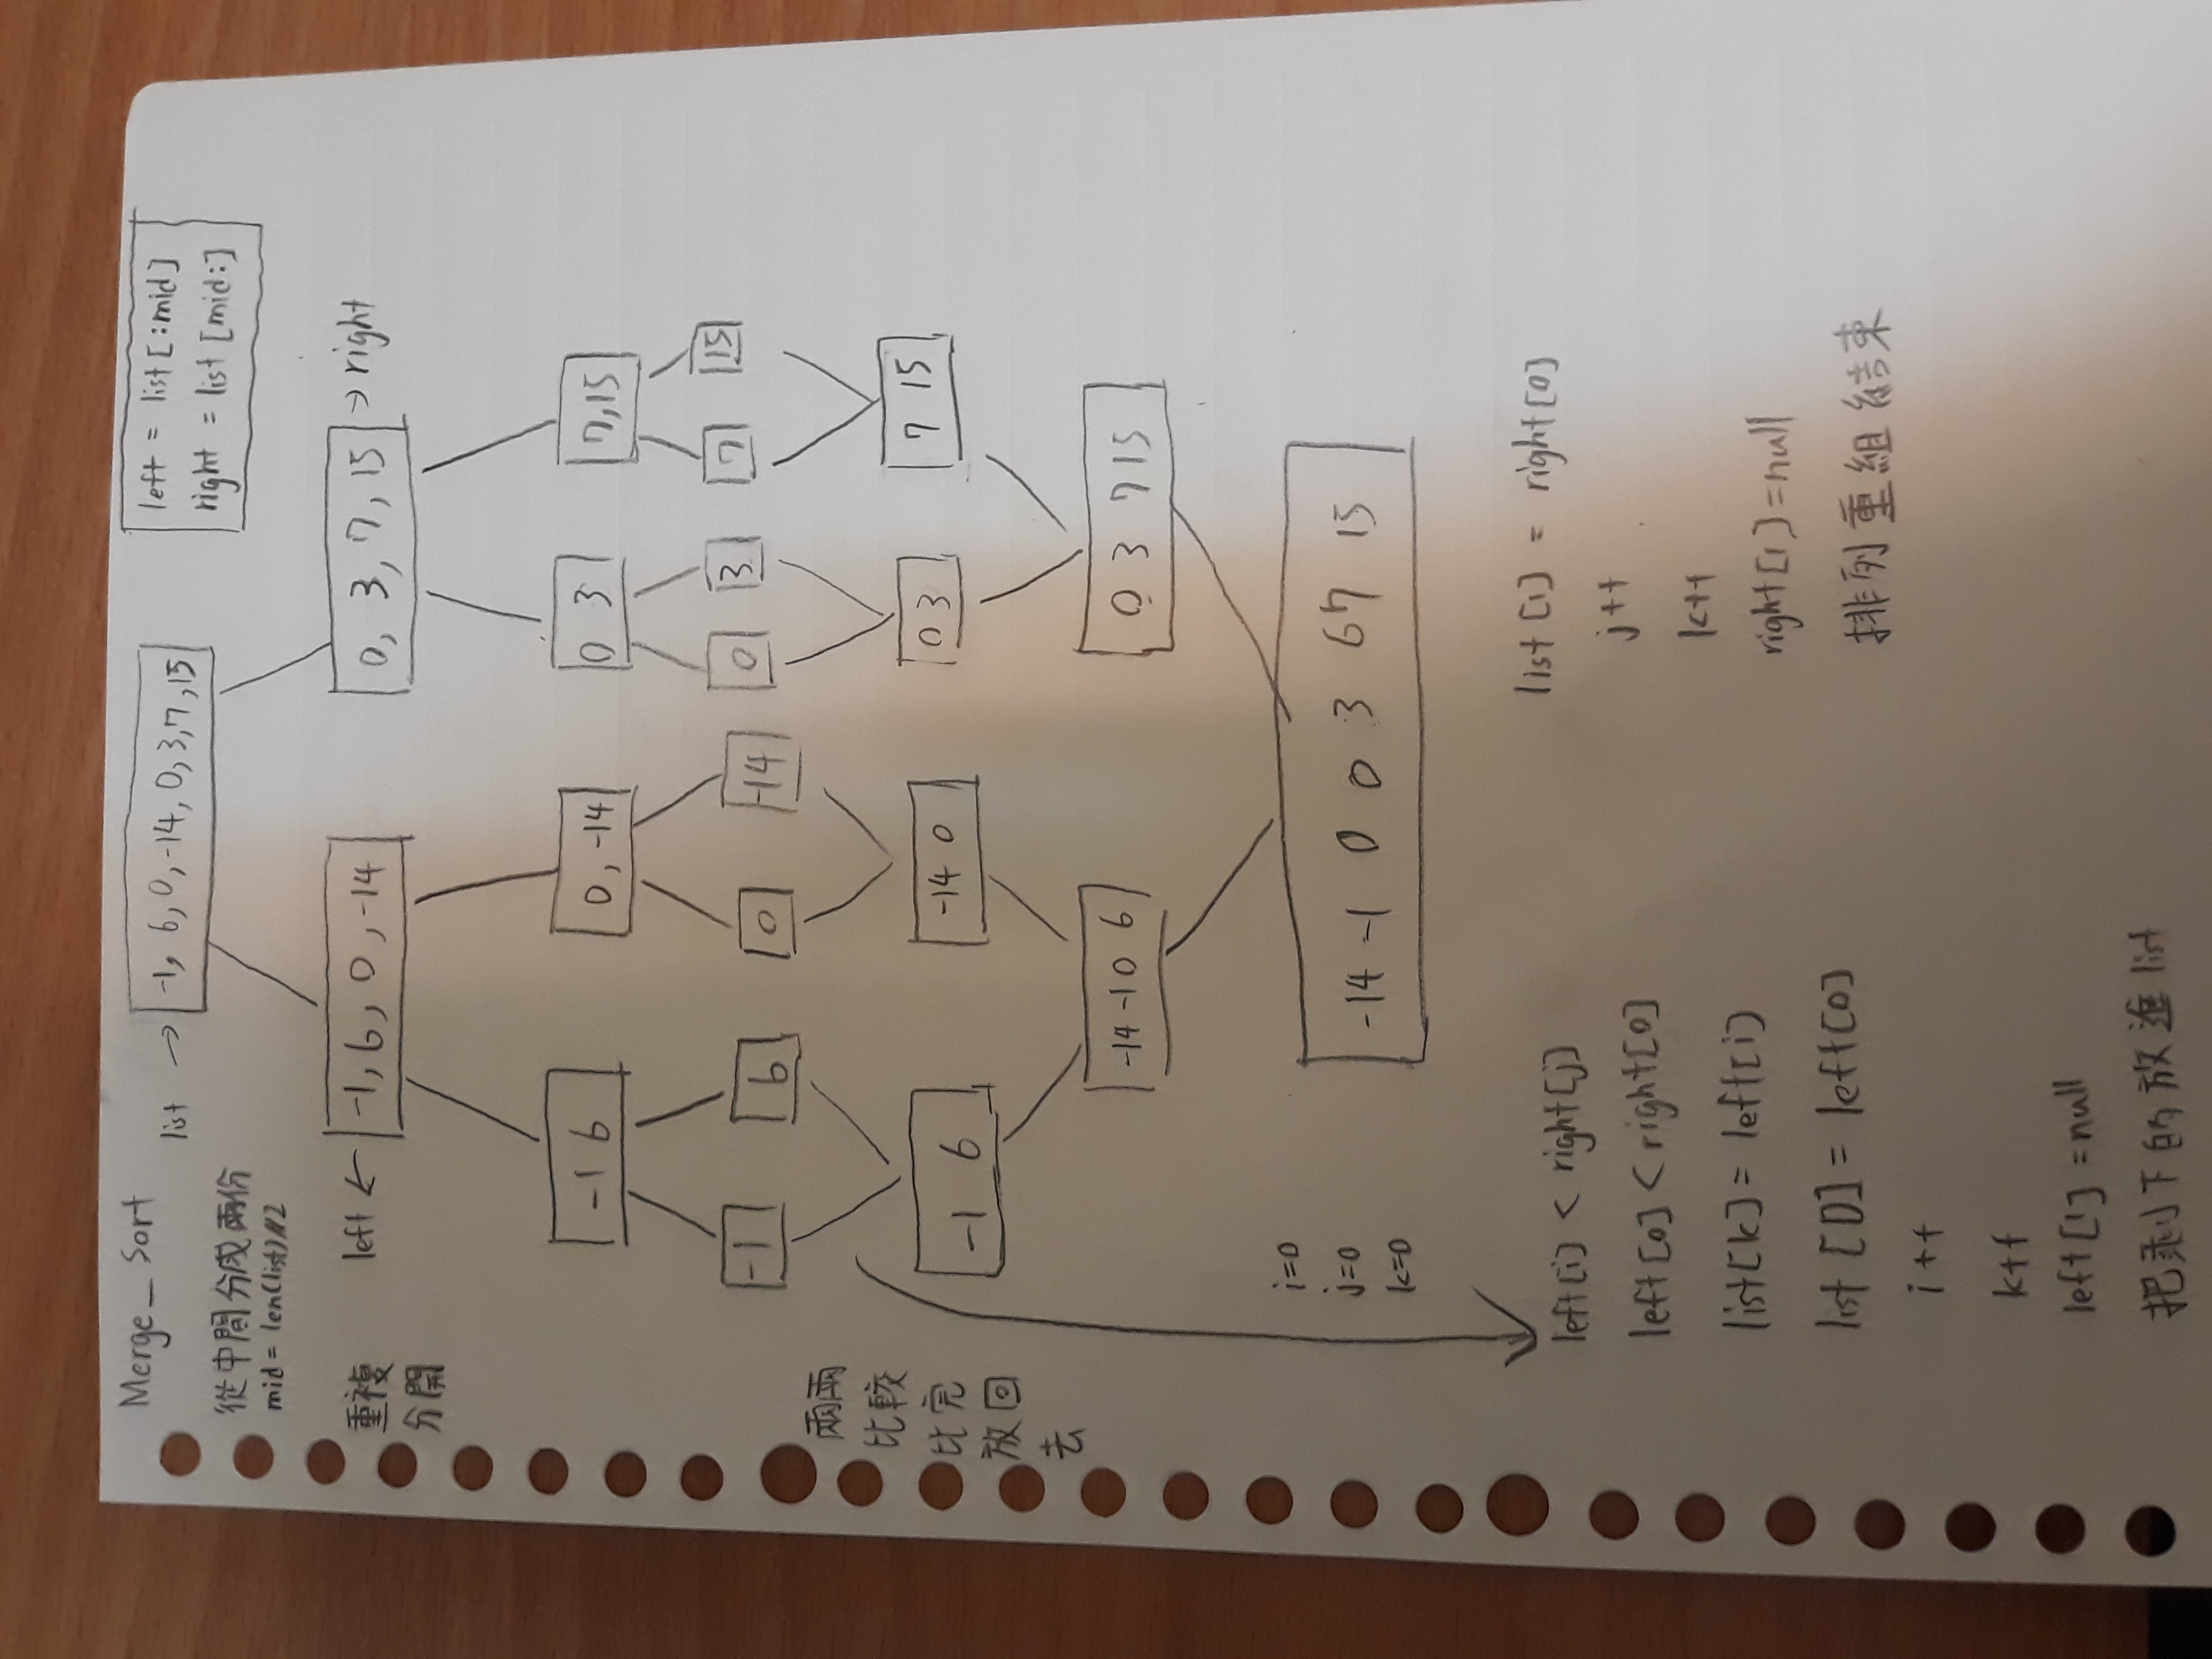 Merge_Sort
list → -1, 6, 0, -14, 0, 3, 7, 15
left = list[:mid]
right = list[mid:]
從中間分成兩份
mid = len(list)//2
重複
分開
left ← -1, 6, 0, -14
0, 3, 7, 15 → right
-1 6
0, -14
0 3
7, 15
-1
6
0
-14
0
3
7
15
兩兩
比較
比完
放回
去
-1 6
-14 0
0 3
7 15
-14 -1 0 6
0 3 7 15
-14 -1 0 0 3 6 7 15
i=0
j=0
k=0
left[i] < right[j]
left[0] < right[0]
list[k] = left[i]
list[0] = left[0]
i++
k++
left[1] = null
把剩下的放進list
list[1] = right[0]
j++
k++
right[1] = null
排列重組結束